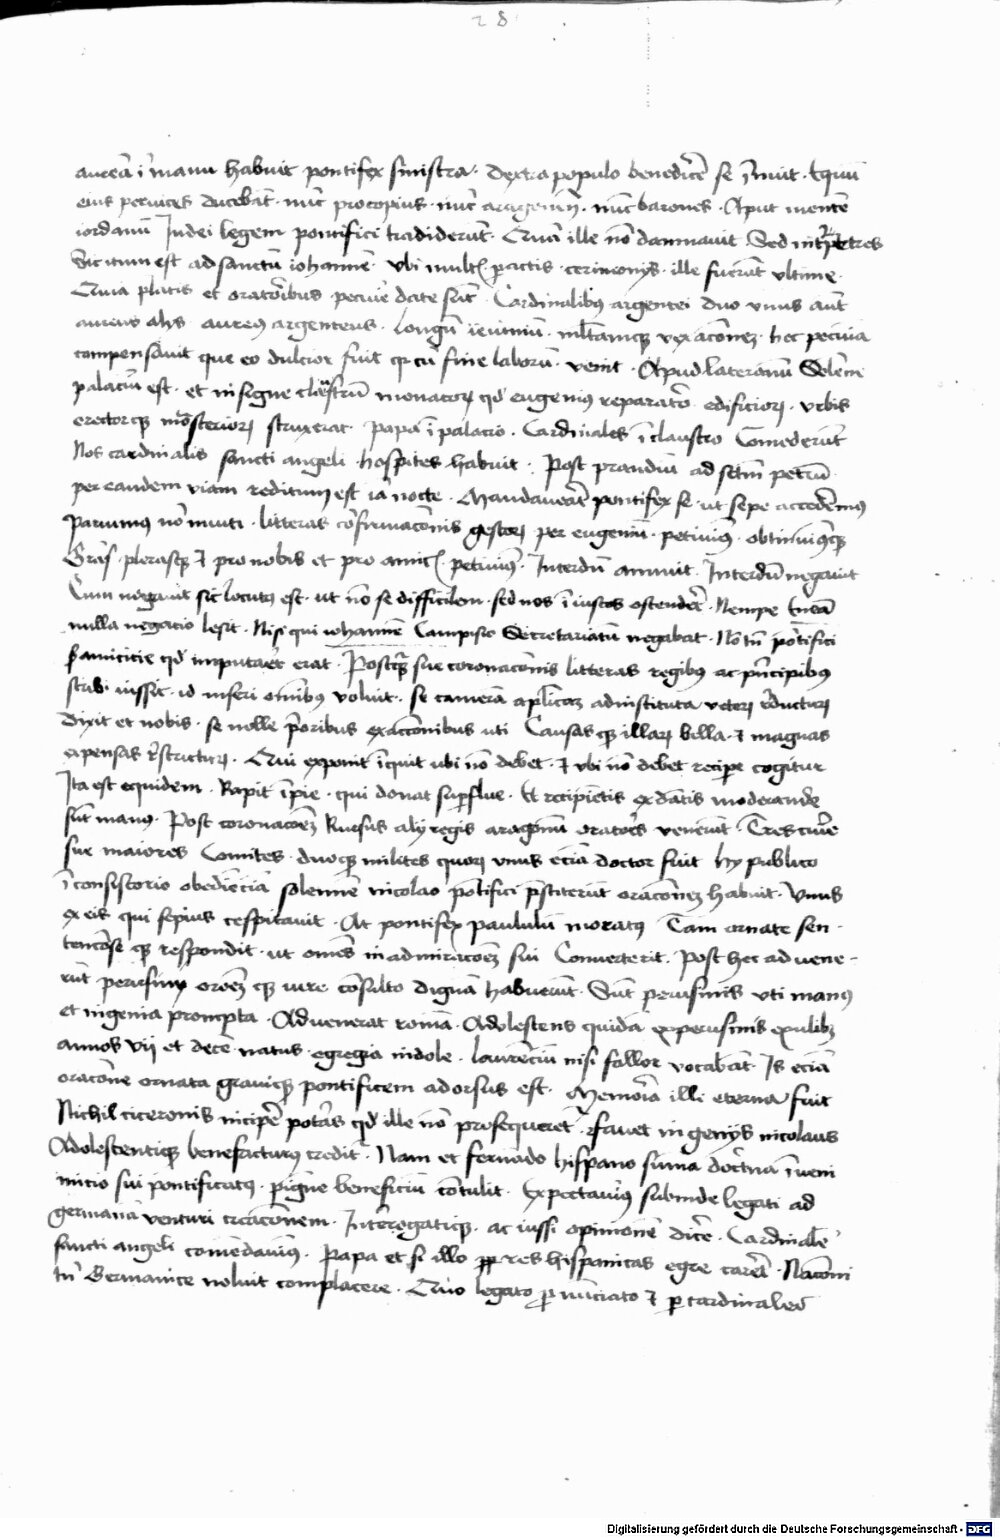 28
aureā ī manu habuit pontifex sinistra · dextra populo benedic̄e se īnuit · Equū
eius peruices ducebāt · nūc procopius · nūc aragoniū · nūc barones · Aput mentē
iordanū Judei legem pontifici tradiderūt · Quā ille nō damnauit Sed int͛ptres
Sic itum est ad sanctū iohannē · vbi mult̄ pactis cerimonijs · ille fuerūt vltime
Quia platis et orator̄ibus pecuīe date sūt · Cardinalibus argentei duo vnus aūt
aureus alijs aureus argenteus · longū ieiuniū · ml̄tamqȝ vexac̄onez hec pecunia
compensauit que eo dulcior fuit qr cū fine laborū · venit · Apud lateranū Solēne
palaciū est · et insigne claustrū monacoꝝ qđ eugenius reparat͛o edificioꝝ · vrbis
erectorqȝ mōsterioꝝ struxerat · papa ī palacio · Cardinales ī claustro Comederūt
Nos cardinalis sancti angeli hospites habuit · Post prandiū ad sctm̄ petrū
per eandem viam reditum est iā nocte · Mandauerat pontifex se · ut sepe accedem͛us
paruimus nō inuiti · litteras cōfirmac̄onis gestoꝝ per eugeniū · petiuim͛ · obtinuim͛qȝ
Grās · plerasqȝ ⁊ pro nobis et pro amic̄ · petiuim͛ · Interdū annuit · Interdū negauit
Cum negauit sic locutꝰ est · ut nō se difficilem · sed nos ī iustos ostender̄ · Nempe
nulla negacio lesit · Nisi qui iohannē Campisio Secretariatū negabat · Nō tn̄ pōtifici
s amicitie qđ imputar̄ erat · Postqȝ sue coronac̄onis litteras regibus ac p͛ncipibus
scribi iussit · id inseri om̄ibus voluit · se camerā apl̄icaȝ ad instituta veteꝝ r̄ducturꝝ
Dixit et nobis · se nolle p͛oribus exacc̄onibus uti Causas qȝ illaꝝ bella · ⁊ magnas
expensas r̄stricturꝝ · Qui exponit īquit ubi nō debet · ⁊ vbi nō debet recipe cogitur
Ita est equidem · Rapit īpie · qui donat suꝑflue · Et recipiētis ex datis moderande
sūt manus · Post coronac̄oeȝ Rursus alij regis aragonū orator̄s venerūt · Tres
sue maiores Comites · duoqȝ milites quoꝝ vnus eciā doctor fuit hy publico
ī consistorio obedienciā solennē nicolao pōtifici p͛stiterūt orac̄onez habuit · Vnus
ex eis qui sepius cespitauit · At pontifex paululū moratꝰ Tam ornate sen-
tenc̄ose qȝ respondit · ut om̄es in admirac̄oeȝ sui Conuerterit · Post hec ad vene-
rūt perusiny or̄oeȝ qȝ iure cōsulto dignā habuerūt · Sūt perusinis vti manꝰ
et ingenia prompta · Aduenerat romā · Adolescens quidā ex perusinis exulibȝ
annos vij et decē natus egregia indole · laurenciū nisi fallor vocabāt · Is eciā
orac̄one ornata grauiqȝ pontificem adorsus est · Memoria illi eterna fuit
Nichil ciceronis incip̄e potes qđ ille nō prosequeret̄ · fauet ingenijs nicolaus
Adolescentiqȝ benefacturus credit͛ · Nam et fernādo hispano suma doctrina ī veni
inicio sui pontificatꝰ · pigue beneficiū cōtulit · Expectauim͛ subinde legati ad
germaniā venturi creac̄onem · Int͛rogatiqȝ · ac iussi opinionē dic̄e · Cardinalē
sancti angeli comēdauim͛ · Papa et si illo ꝓp res hispanicas egre car̄et · Nac̄oni
tn̄ Germanice uoluit complacere · Quo legato ꝓnūciato ⁊ ꝑ cardinales
Digitalisierung gefördert durch die Deutsche Forschungsgemeinschaft - DFG